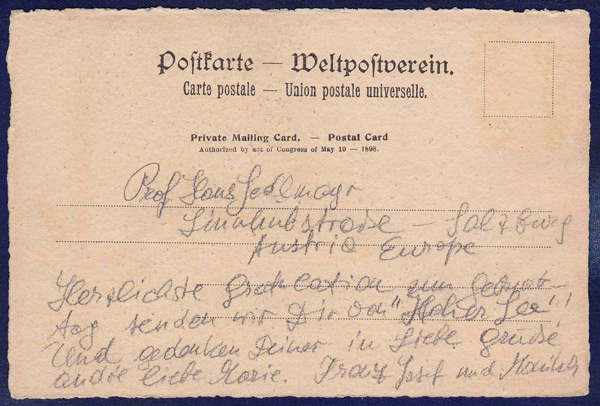 Postkarte — Weltpostverein.
Carte postale — Union postale universelle.
Private Mailing Card. — Postal Card
Authorized by act of Congress of May 19 — 1898.
Prof Hans Sedlmayr
straße — Salzburg
Austria Europe
Herzlichste Gratulation zum Geburts-
tag senden wir Dir "Hoher See"!
Und gedenken Deiner in Liebe grüße
liebe Marie. Franz Josef und